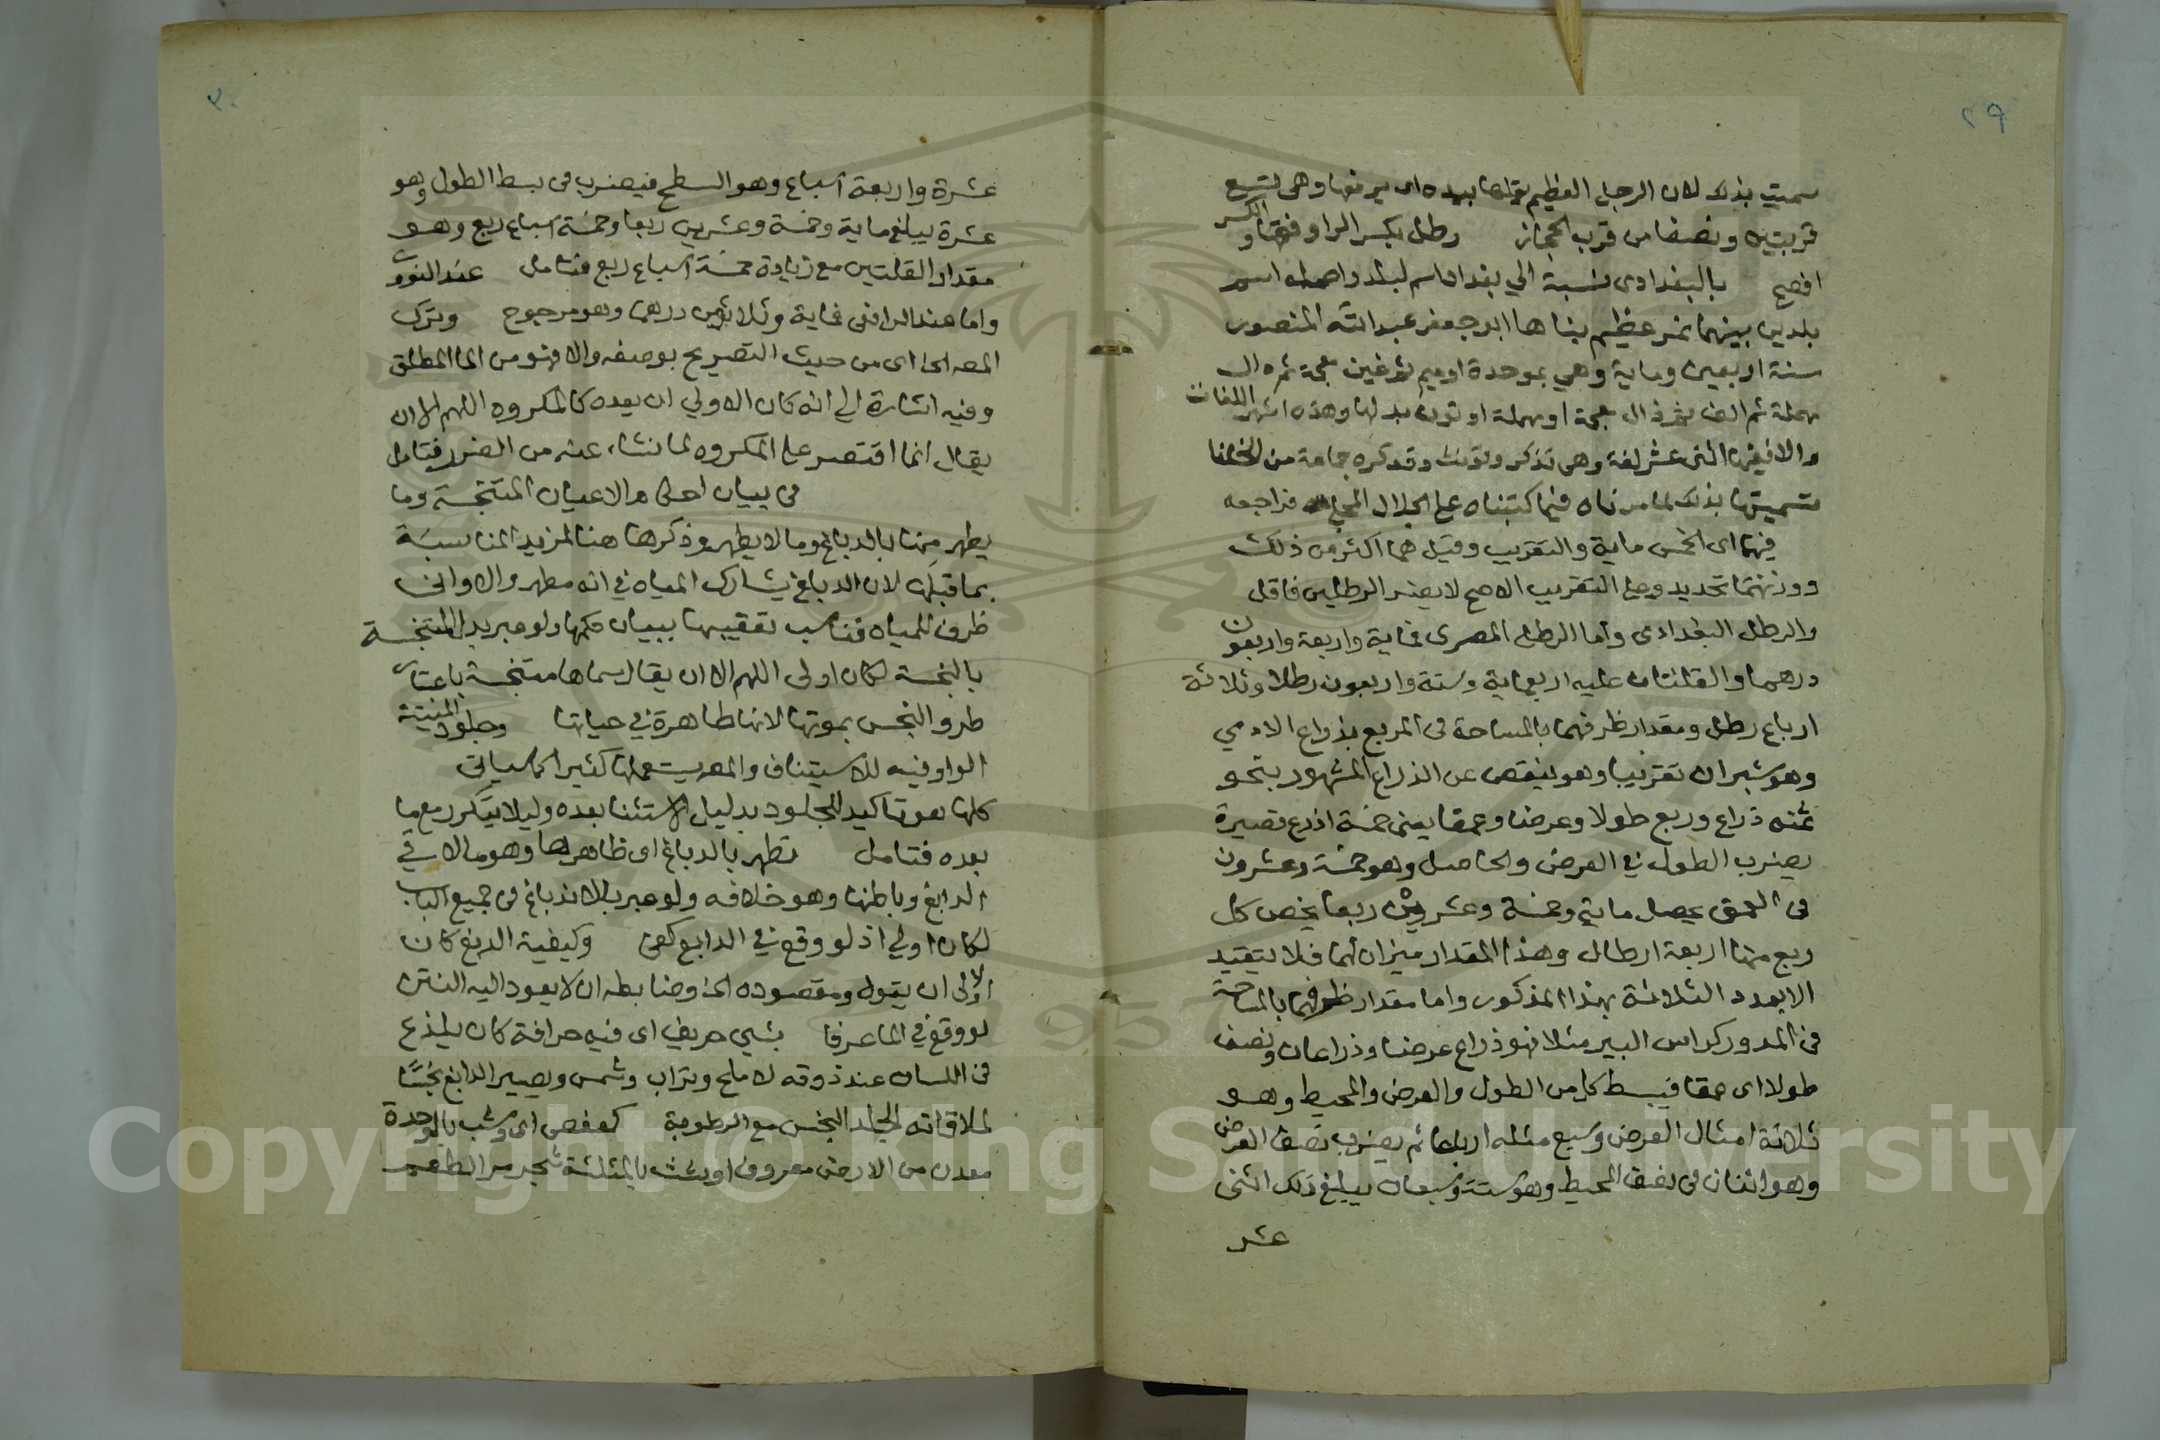 ٢٩
سميت بذلك لان الرجل العظيم يقلها بيده اى يرفعها وهى تسع
قربتين ونصفا من قرب الحجاز رطل بكسر الراء وفتحها والكسر
افصح بالبغدادى نسبة الي بغداد اسم لبلد واصله اسم
بلدين بينهما نهر عظيم بناها ابو جعفر عبد الله المنصور
سنة اربعين وماية وهي بموحدة اوميم ثم غين معجمة ثم دال
مهملة ثم الف ثم ذال معجمة او مهملة او نون بدلها وهذه اشهر اللغات
والا ففيها اثنى عشر لغة وهى تذكر وتونث وقد كره جماعة من الخلفا
تسميتها بذلك لما مرناه فيما كتبناه على الجلال المحلى فراجعه
فيهما اى الخمس ماية والتقريب وقيل هما اكثر من ذلك
ووزنهما تحديد وعلى التقريب الاصح لا يضر الرطلين فاقل
والرطل البغدادى واما الرطل المصرى فماية واربعة واربعون
درهما والقلتان عليه اربعماية وستة واربعون رطلا وثلاثة
ارباع رطل ومقدار ظرفهما بالمساحة فى المربع بذراع الادمي
وهو شبران تقريبا وهو ينقص عن الذراع المشهور بنحو
ثمنه ذراع وربع طولا وعرضا وعمقا يعنى خمسة اذرع قصيرة
يضرب الطول في العرض والحاصل وهو خمسة وعشرون
فى العمق يحصل ماية وخمسة وعشرون ربعا يخص كل
ربع منها اربعة ارطال وهذا المقدار ميزان لهما فلا يتقيد
الابعدد الثلاثة بهذا المذكور واما مقدار ظرفهما بالمساحة
فى المدور كراس البير مثلا فهو ذراع عرضا وذراعان ونصف
طولا اى عمقا فيبسط كل من الطول والعرض والمحيط وهو
ثلاثة امثال العرض وسبع مثله ارباعا ثم يضرب نصف العرض
وهو اثنان فى نصف المحيط وهو ستة وسبعان يبلغ ذلك اثنى
عشر
٣٠
عشرة واربعة اسباع وهو السطح فيضرب فى بسط الطول وهو
عشرة يبلغ ماية وخمسة وعشرين ربعا وخمسة اسباع ربع وهو
مقدار القلتين مع زيادة خمسة اسباع ربع فتامل عند النووى
واما عند الرافعى فماية وثلاثون درهما وهو مرجوح وترك
المصه الخ اى من حيث التصريح بوصفه والا فهو من الما المطلق
وفيه اشارة الى انه كان الاولي ان يعده كالمكروه اللهم الا ان
يقال انما اقتصر على المكروه لما نشاء عنه من الضرر فتامل
فى بيان احكام الاعيان المتنجسة وما
يطهر منها بالدباغ وما لا يطهر وذكرها هنا لمزيد المناسبة
بما قبله لان الدباغ يشارك المياه في انه مطهر والاوانى
ظروف للمياه فناسب تعقيبها ببيان حكمها ولو عبر بدل المتنجسة
بالنجسة لكان اولى اللهم الا ان يقال سماها متنجسة باعتبار
طرو النجس بموتها لانها طاهرة في حياتها وجلود الميتة
الواو فيه للاستيناف والمص يستعملها كثيرا كما سياتى
كلها هو تاكيد للجلود بدليل الاستثنا بعده وليلا يتكرر مع ما
بعده فتامل تطهر بالدباغ اى ظاهرها وهو ما لاقى
الدابغ وباطنها وهو خلافه ولو عبر بالاندباغ فى جميع الباب
لكان اولي اذ لو وقع في الدابغ كفى وكيفية الدبغ كان
الاولى ان يقول ومقصوده الخ وضابطه ان لا يعود اليه النتن
لو وقع في الما عرفا بشي حريف اى فيه حرافة كان يلذع
فى اللسان عند ذوقه لا ملح وتراب وشمس ويصير الدابغ نجسا
لملاقاته الجلد النجس مع الرطوبة كعفص اى وشب بالموحدة
معدن من الارض معروف او شث بالمثلثة شجر مر الطعم
Copyright © King Saud University
1957